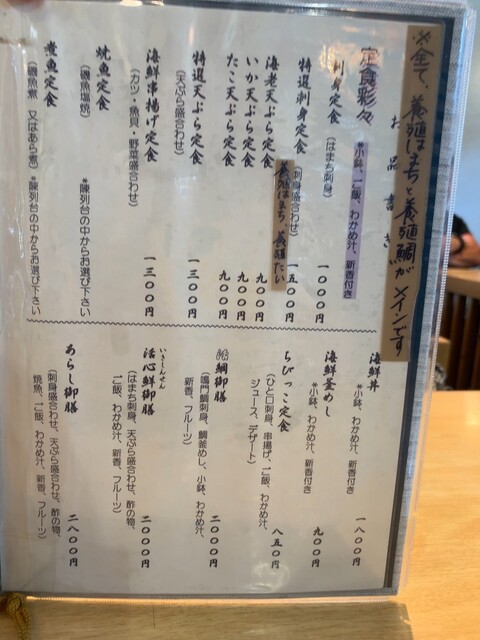 ※全て、養殖はまちと養殖鯛がメインです
お品書き
定食彩々
*小鉢、ご飯、わかめ汁、新香付き
刺身定食
(はまち刺身)
一〇〇〇円
特選刺身定食
(刺身盛合わせ)
一五〇〇円
養殖はまち 養殖たい
海老天ぷら定食
九〇〇円
いか天ぷら定食
九〇〇円
たこ天ぷら定食
九〇〇円
特選天ぷら定食
(天ぷら盛合わせ)
一三〇〇円
海鮮串揚げ定食
(カツ・魚貝・野菜盛合わせ)
一三〇〇円
焼魚定食
(磯魚塩焼)
*陳列台の中からお選び下さい
煮魚定食
(磯魚煮 又はあら煮)
*陳列台の中からお選び下さい
海鮮丼
*小鉢、わかめ汁、新香付き
一八〇〇円
海鮮釜めし
*小鉢、わかめ汁、新香付き
九〇〇円
ちびっこ定食
(ひと口刺身、串揚げ、ご飯、わかめ汁、
ジュース、デザート)
八五〇円
鯛御膳
(鳴門鯛刺身、鯛釜めし、小鉢、わかめ汁、
新香、フルーツ)
二〇〇〇円
いきしんせん
活心鮮御膳
(はまち刺身、天ぷら盛合わせ、酢の物、
ご飯、わかめ汁、新香、フルーツ)
二〇〇〇円
あらし御膳
(刺身盛合わせ、天ぷら盛合わせ、酢の物、
焼魚、ご飯、わかめ汁、新香、フルーツ)
二八〇〇円